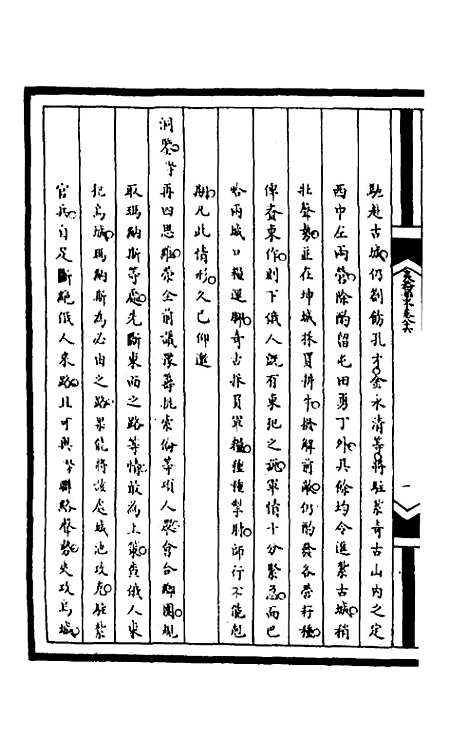 馳赴古城仍劄飭孔才金永清等將駐紮奇古山內之定
西中左兩營除酌留屯田勇丁外其餘均令進紮古城稍
壯聲勢並在坤城採買耕牛撥解前敵仍酌發各營籽種
俾春東作刻下俄人既有東犯之謠軍情十分緊急而巴
哈兩城口糧運腳奇古採買軍糧種種掣肘師行不能剋
期凡此情形久已仰邀
洞鑒等再四思維榮全前議豫籌抵索倫等項人眾會合鄉團規
取瑪納斯等處先斷東西之路等情最為上策查俄人東
犯烏城瑪納斯為必由之路果能將該處城池攻克駐紮
官兵自足斷絕俄人來路且可與等聯絡聲勢夾攻烏城
一